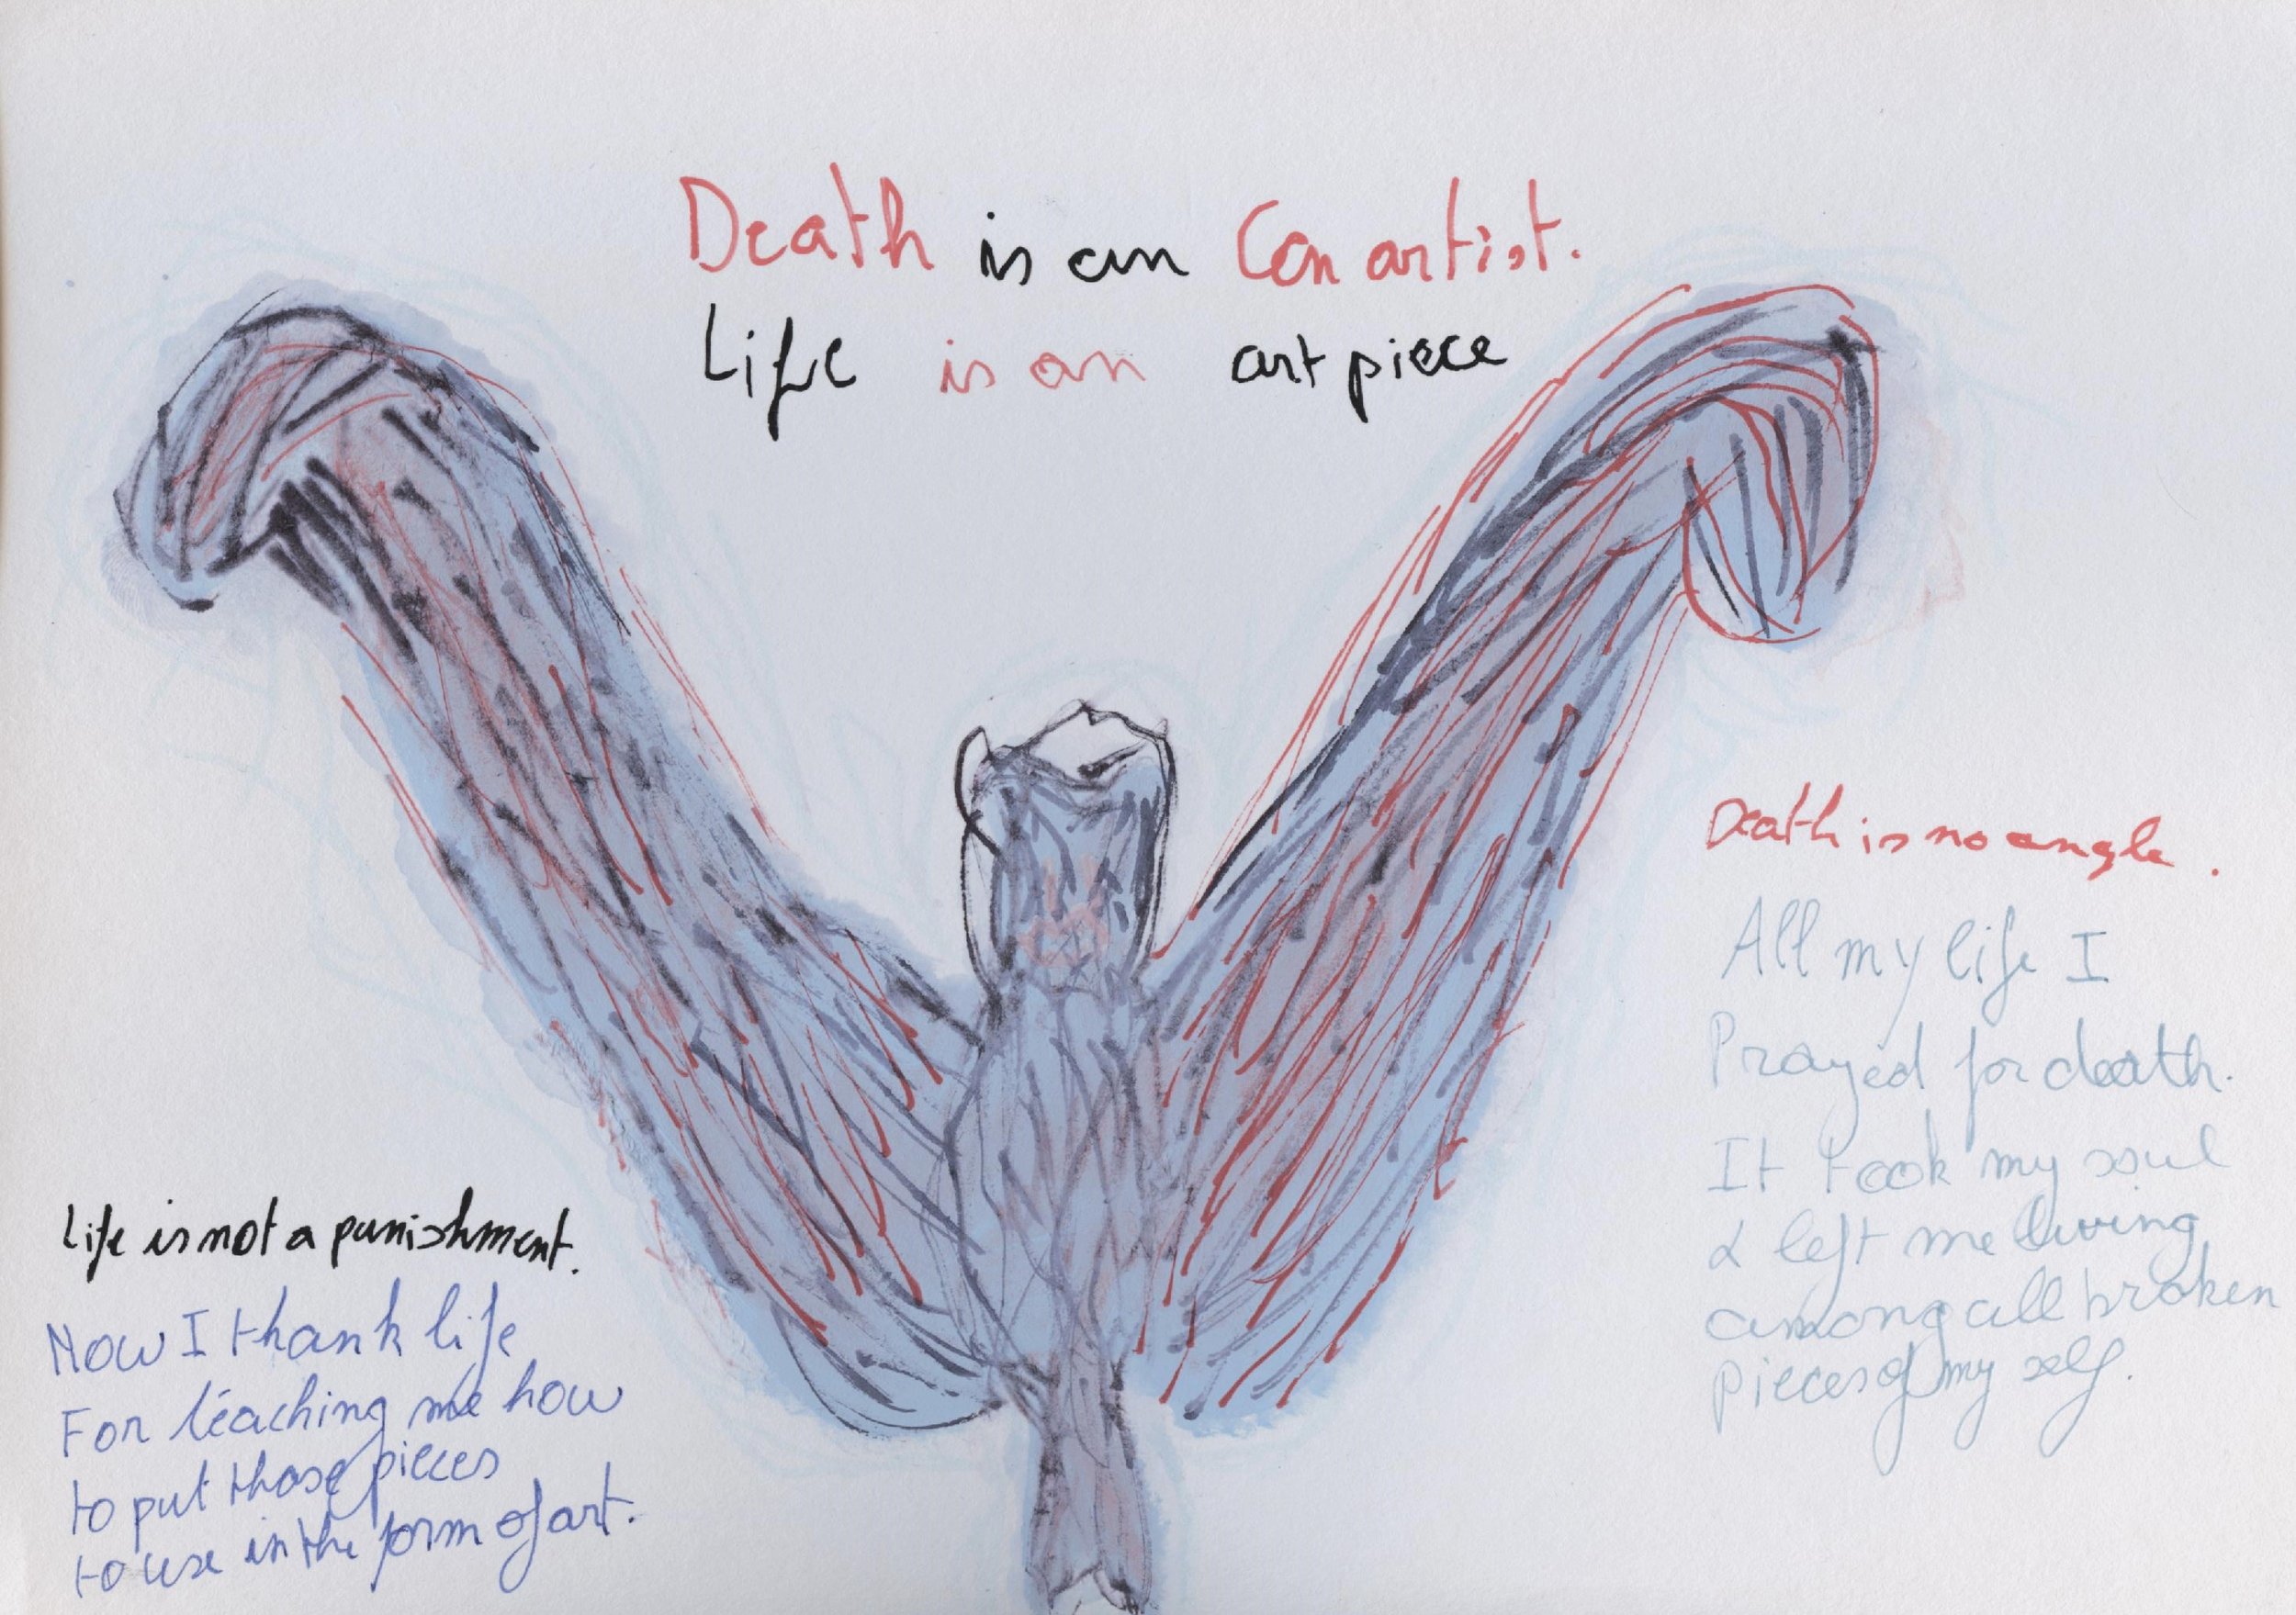 Death is an Con artist.
Life is an art piece
Death is no angle.
All my life I
Prayed for death.
It took my soul
& left me living
among all broken
pieces of my self.
Life is not a punishment.
Now I thank life
For teaching me how
to put those pieces
to use in the form of art.